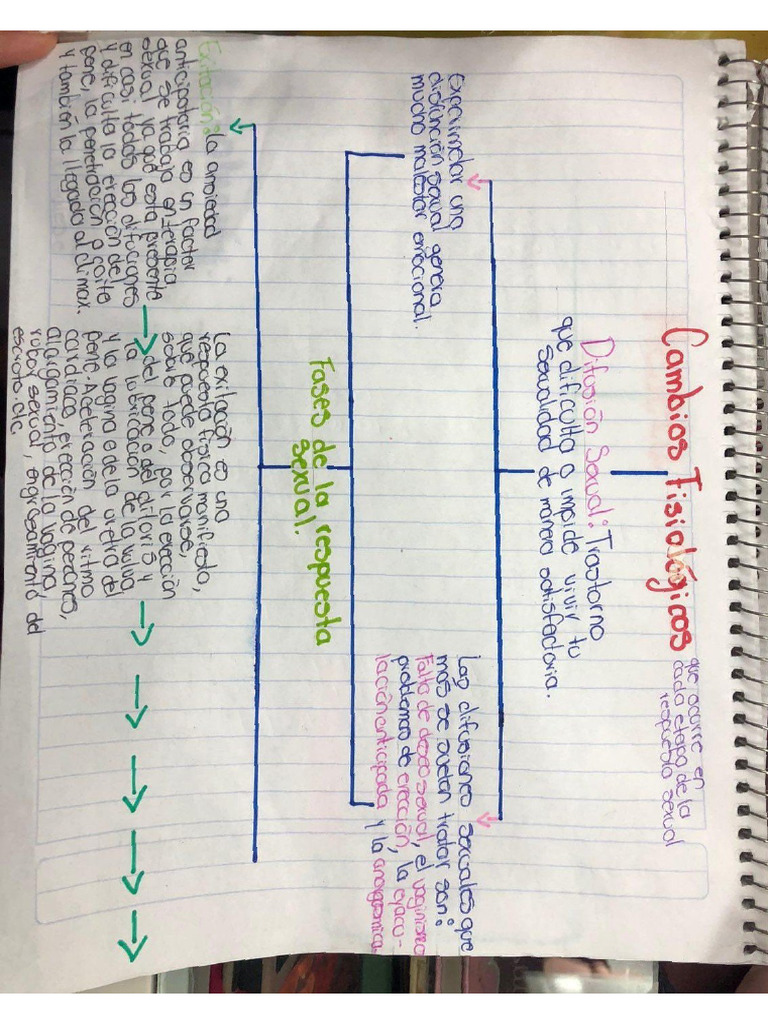 Cambios Fisiológicos
que ocurre en
cada etapa de la
respuesta sexual
Difusión Sexual: Trastorno
que dificulta o impide vivir tu
sexualidad de manera satisfactoria.
Experimetar una
disfunción sexual genera
mucho malestar emocional.
Las difusiones sexuales que
mas se suelen tratar son:
Falta de deseo sexual, el vaginismo
problemas de erección, la eyacu-
lación anticipada y la anorgasmica.
Fases de la respuesta
sexual.
Exitación: La ansiedad
anticipatoria es un factor
que se trabaja en terapia
sexual ya que esta presente
en casi todas las difuciones
y dificulta la erección del
pene, la penetración o coito
y también la llegada al climax.
La exitación es una
respuesta fisica manifiesta,
que puede observarse,
sobre todo, por la erección
del pene o del clitoris y
la lubricación de la vulva
y la vagina o de la uretra del
pene. Aceleración del ritmo
cardiaco, erección de pezones,
alargamiento de la vagina,
rubor sexual, engrosamiento del
escroto. etc.